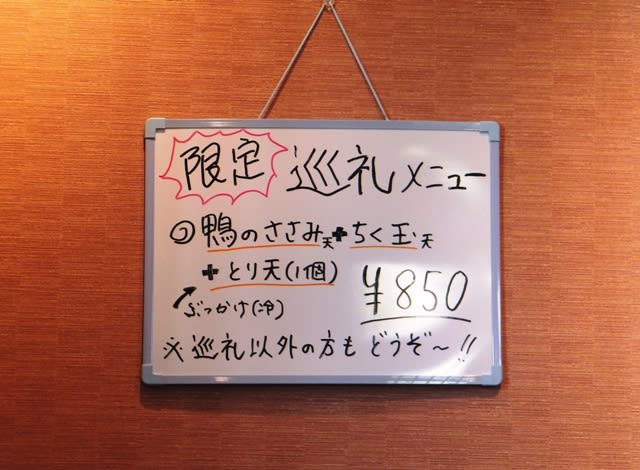 限定 巡礼メニュー
鴨のささみ天+ちく玉天
+とり天(1個)
ぶっかけ(冷) ¥850
※巡礼以外の方もどうぞ〜!!